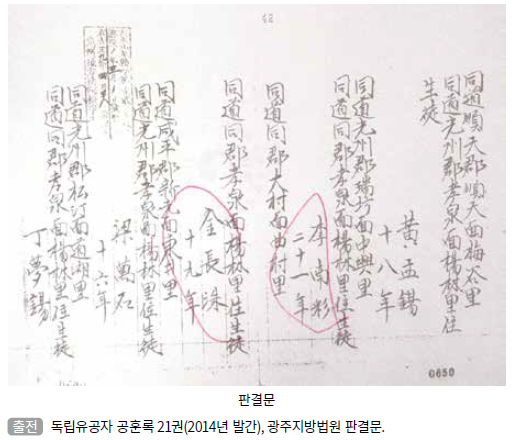 42
同道順天郡順天面梅谷里
同道光州郡孝泉面楊林里住
生徒
黃孟錫
十八年
同道光州郡瑞坊面中興里
同道同郡孝泉面楊林里住生徒
李南彩
二十一年
同道同郡大村面村里
同道同郡孝泉面楊林里住生徒
金長洙
十九年
同道咸平郡新光面東里
同道光州郡孝泉面楊林里住生徒
梁萬石
十六年
同道光州郡松汀面道湖里
同道同郡孝泉面楊林里住生徒
丁夢錫
0650
판결문
출전 독립유공자 공훈록 21권(2014년 발간), 광주지방법원 판결문.